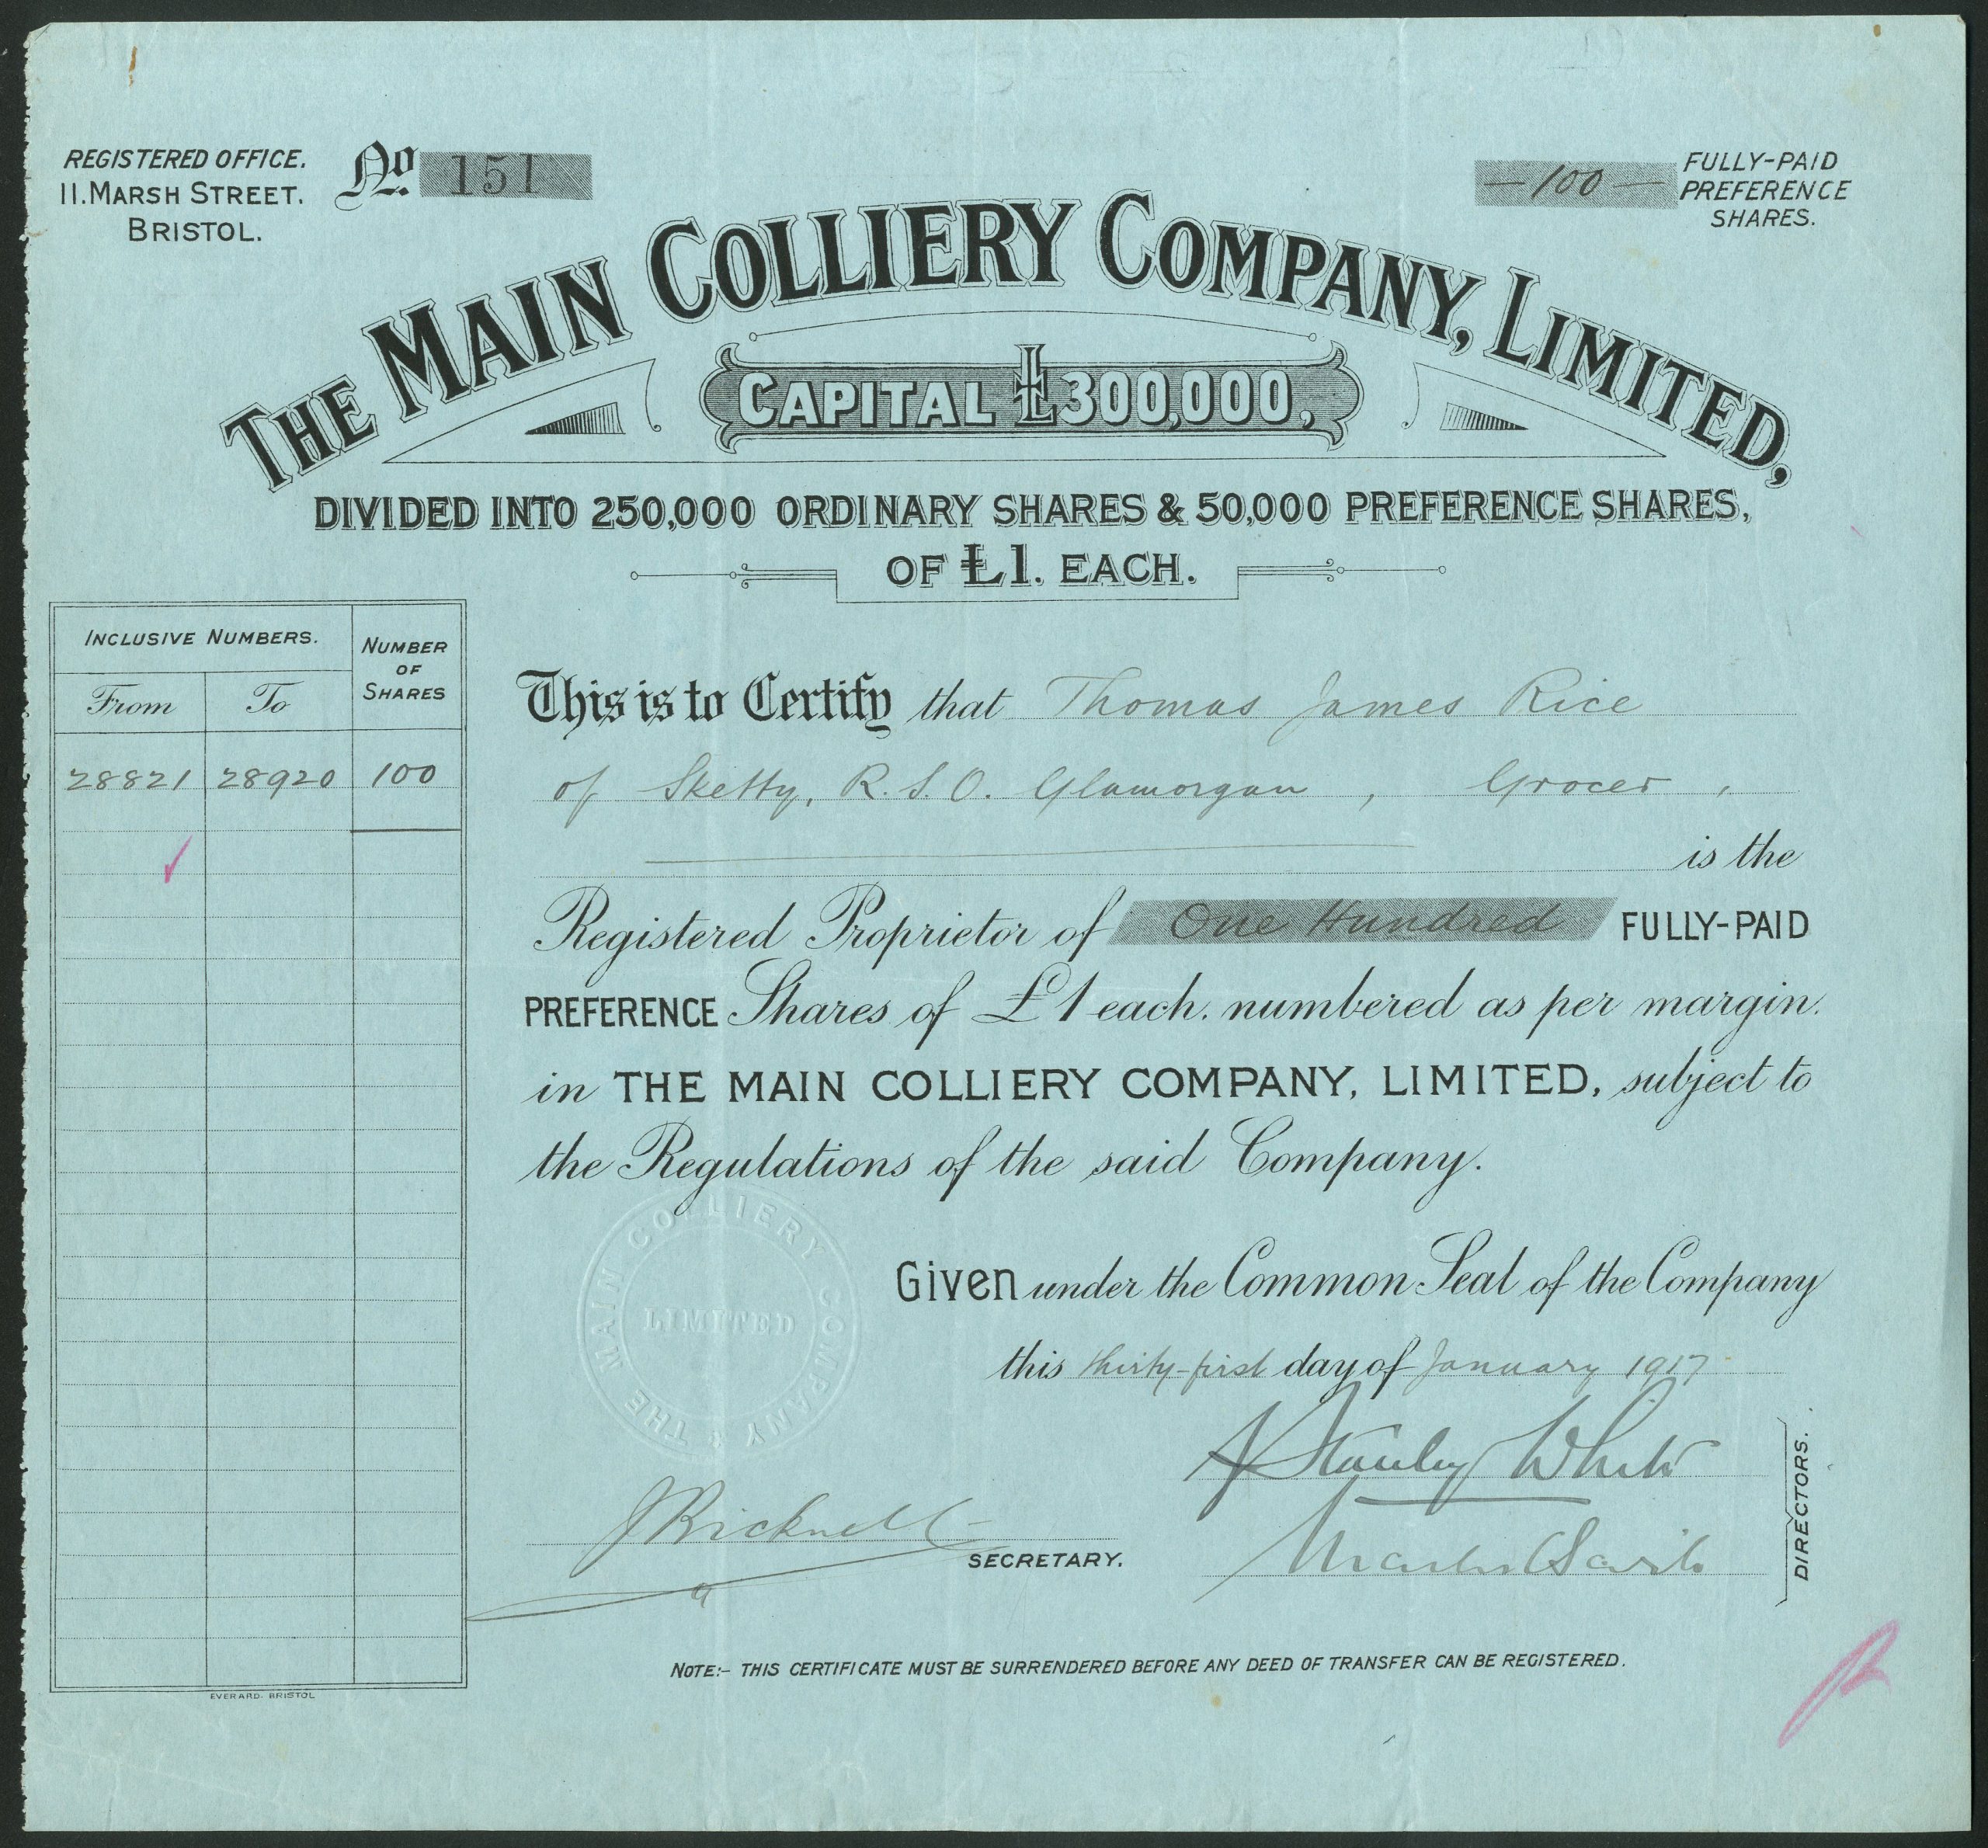 REGISTERED OFFICE.
11. MARSH STREET.
BRISTOL.
No. 151
—100—
FULLY-PAID
PREFERENCE
SHARES.
THE MAIN COLLIERY COMPANY, LIMITED,
CAPITAL £300,000,
DIVIDED INTO 250,000 ORDINARY SHARES & 50,000 PREFERENCE SHARES,
OF £1. EACH.
INCLUSIVE NUMBERS.
NUMBER OF SHARES
From To
28821 28920 100
This is to Certify that Thomas James Rice
of Sketty, R.S.O. Glamorgan, Grocer,
is the
Registered Proprietor of One Hundred FULLY-PAID
PREFERENCE Shares of £1 each. numbered as per margin.
in THE MAIN COLLIERY COMPANY, LIMITED, subject to
the Regulations of the said Company.
THE MAIN COLLIERY COMPANY
LIMITED
Given under the Common Seal of the Company
this thirty-first day of January 1917
Stanley White
J Bicknell
SECRETARY.
DIRECTORS.
NOTE:- THIS CERTIFICATE MUST BE SURRENDERED BEFORE ANY DEED OF TRANSFER CAN BE REGISTERED.
EVERARD. BRISTOL